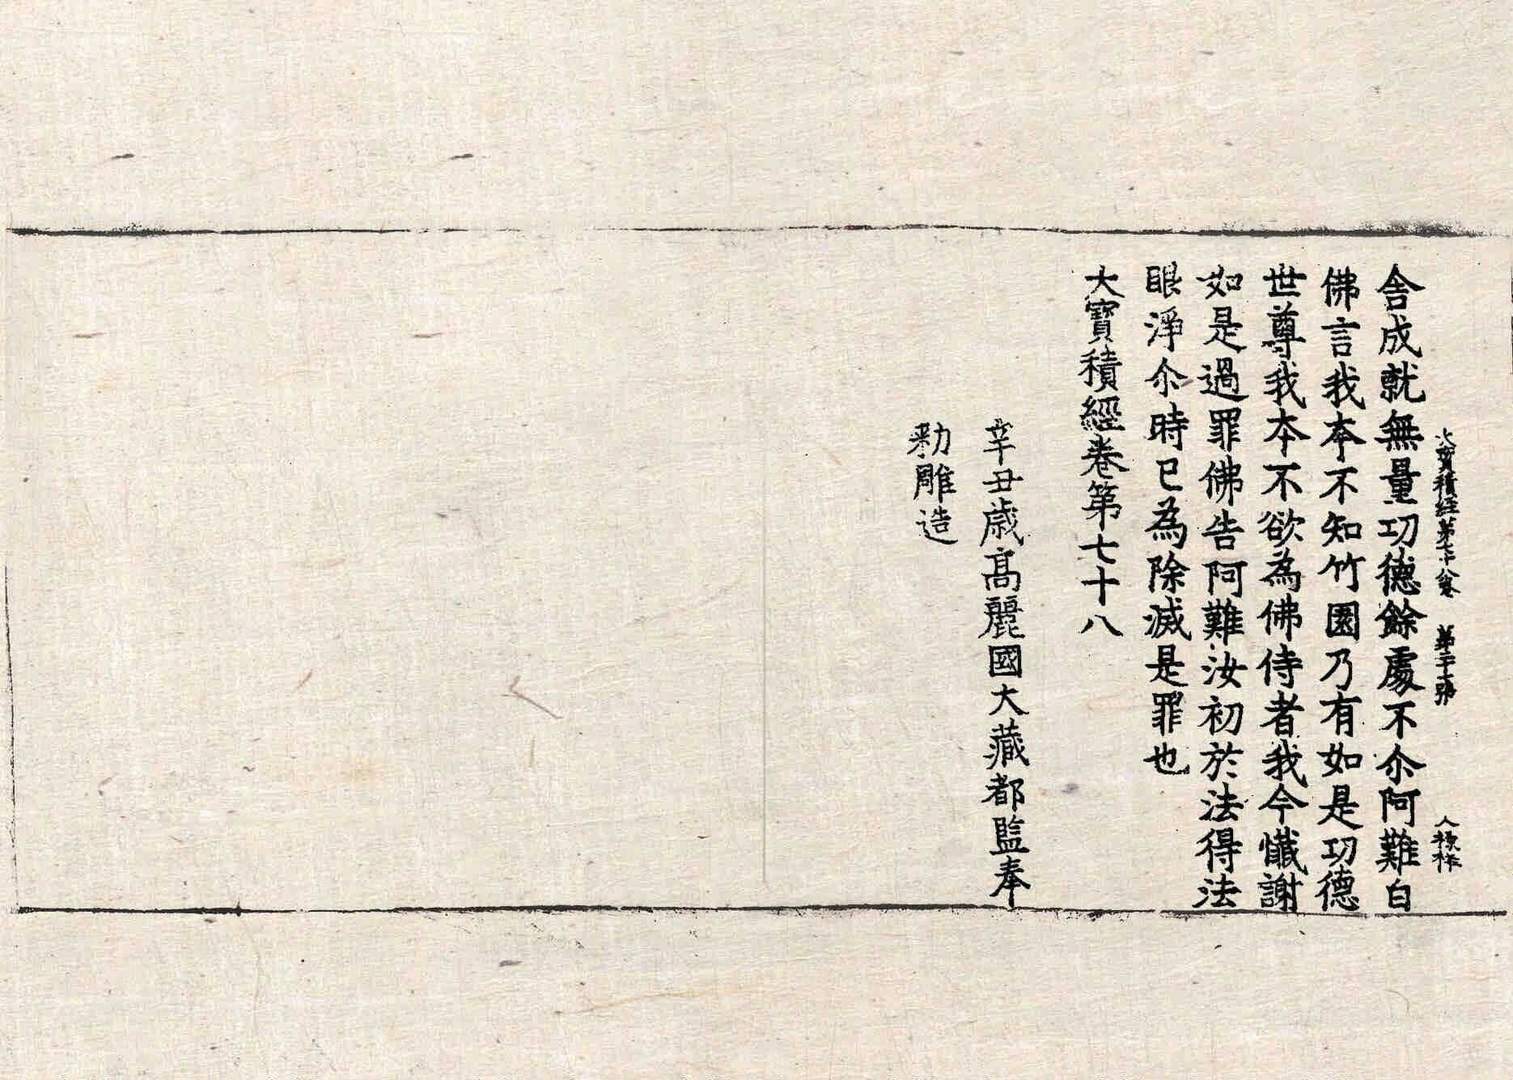 大寶積經第七十八卷　第二十七張　人　祿　作
舍成就無量功德餘處不尒阿難白
佛言我本不知竹園乃有如是功德
世尊我本不欲為佛侍者我今懺謝
如是過罪佛告阿難汝初於法得法
眼淨尒時已為除滅是罪也
大寶積經卷第七十八
辛丑歲高麗國大藏都監奉
勑雕造